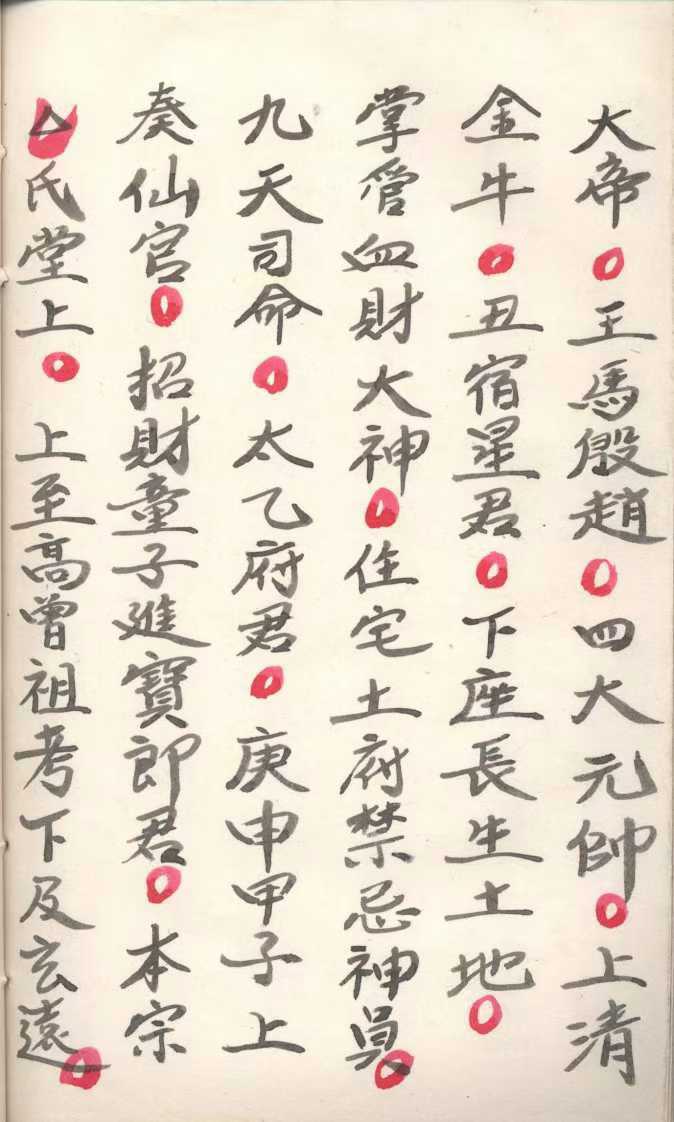 大帝○王馬殷趙○四大元帥○上清
金牛○丑宿星君○下座長生土地○
掌管血財大神○住宅土府禁忌神眞○
九天司命○太乙府君○庚申甲子上
奏仙官○招財童子進寶郎君○本宗
厶氏堂上○上至高曾祖考下及玄遠○